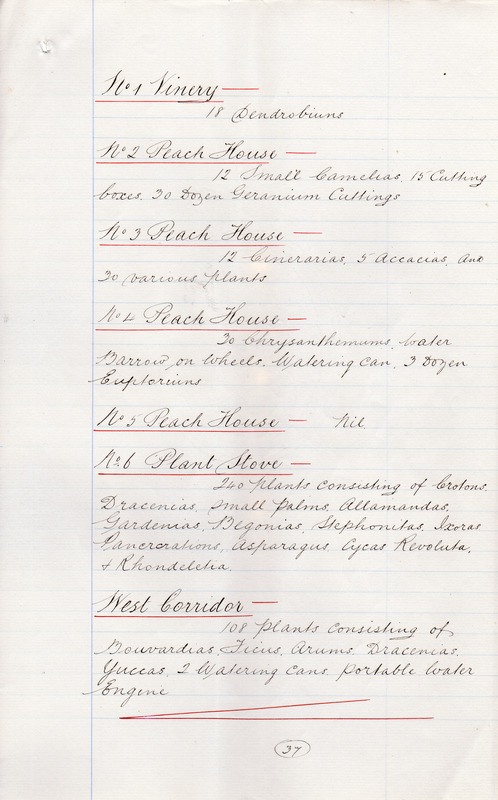 No 1 Vinery —
18 Dendrobiums
No 2 Peach House —
12 Small Camelias, 15 Cutting
boxes, 30 Dozen Geranium Cuttings
No 3 Peach House —
12 Cinerarias, 5 Accacias, and
30 various plants
No 4 Peach House —
30 Chrysanthemums, Water
Barrow, on Wheels, Watering Can, 3 Dozen
Euptoriums
No 5 Peach House — Nil.
No 6 Plant Stove —
240 plants consisting of Crotons,
Dracenias, small palms, Allamandas,
Gardenias, Begonias, Stephonitas, Ixoras,
Pancrcrations, Asparagus, Cycas Revoluta,
& Rhondeletia.
West Corridor —
108 plants consisting of
Bouvardias, Ficus, Arums, Dracenias,
Yuccas, 2 Watering Cans, portable Water
Engine
37